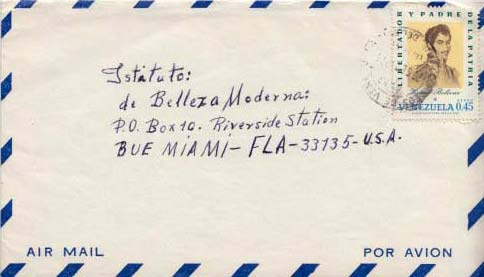 LIBERTADOR Y PADRE DE LA PATRIA
Simón Bolívar
VENEZUELA 0.45
Istituto:
de Belleza Moderna:
P.O. Box 10. Riverside Station
BUE MIAMI - FLA - 33135 - U.S.A.
AIR MAIL
POR AVION